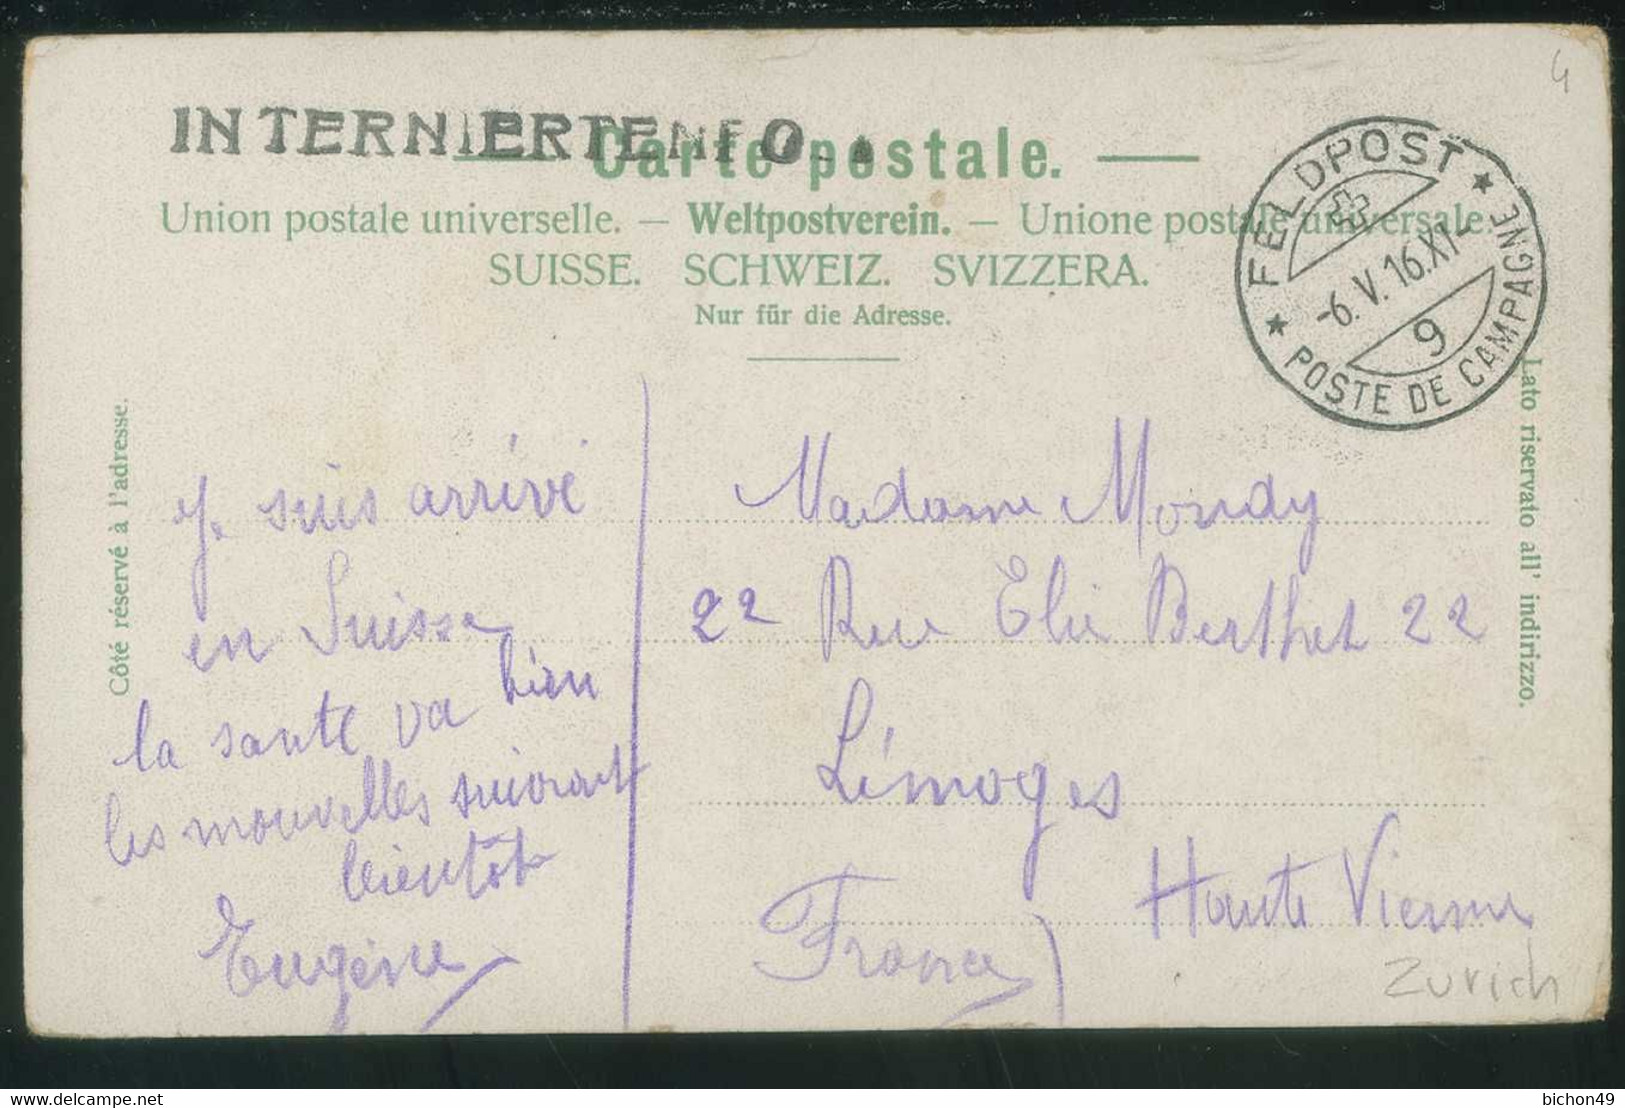 4
INTERNIERTEN
— Carte postale. —
Union postale universelle. — Weltpostverein. — Unione postale universale.
SUISSE. SCHWEIZ. SVIZZERA.
Nur für die Adresse.
★ FELDPOST ★
-6.V.16.XI-
9
POSTE DE CAMPAGNE
Côté réservé à l'adresse.
Lato riservato all' indirizzo.
Je suis arrivé
en Suisse
la santé va bien
les nouvelles suivront
bientôt
Eugène
Madame Mondy
22 Rue Elie Berthet 22
Limoges
Haute Vienne
France
Zurich
delcampe.net
bichon49